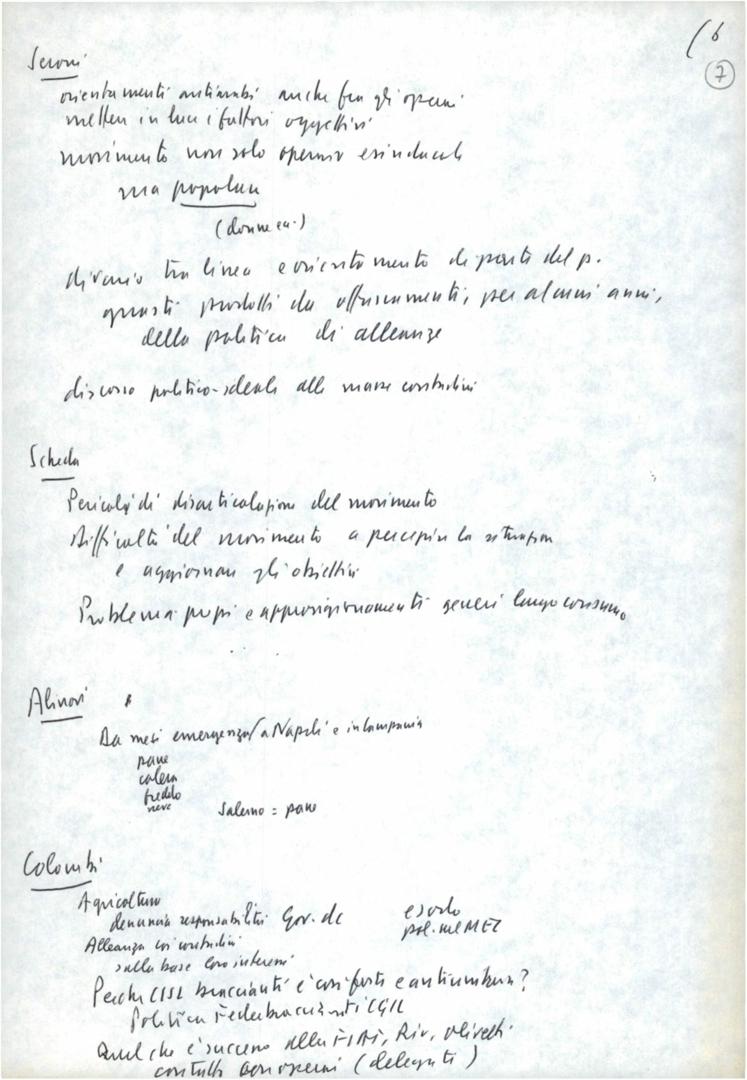 6
7
Seroni
orientamenti antiarabi anche fra gli operai
mettere in luce i fattori oggettivi
movimento non solo operaio e sindacale
ma popolare
(donne ecc.)
divario tra linea e orientamento di parte del p.
guasti prodotti da offuscamenti, per alcuni anni,
della politica di alleanze
discorso politico-ideale alle masse contadine
Scheda
Pericoli di disarticolazione del movimento
difficoltà del movimento a percepire la situazione
e aggiornare gli obiettivi
Problema prezzi e approvvigionamenti generi largo consumo
Alinovi
Da mesi emergenza a Napoli e in Campania
pane
colera
freddo
neve
Salerno = pane
Colombi
Agricoltura
denuncia responsabilità Gov. dc
esodo
pol. nel MEC
Alleanza coi contadini
sulla base loro interessi
Perché CISL braccianti è così forte e antiunitaria?
Politica Federbraccianti CGIL
Quel che è successo alla FIAT, Riv, Olivetti
contatti con operai (delegati)